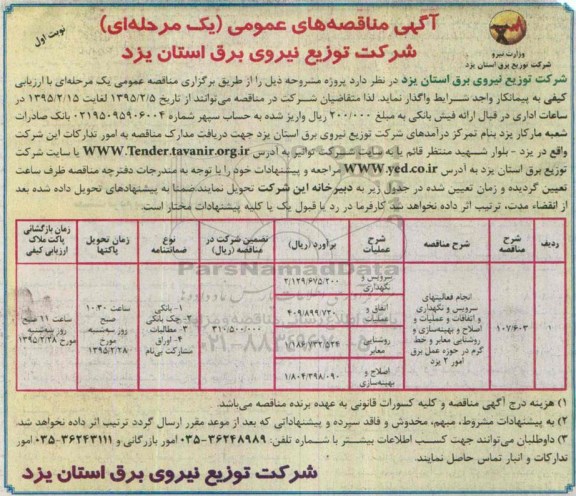 آگهی مناقصه‌های عمومی (یک مرحله‌ای)
شرکت توزیع نیروی برق استان یزد
نوبت اول
وزارت نیرو
شرکت توزیع برق استان یزد
شرکت توزیع نیروی برق استان یزد در نظر دارد پروژه مشروحه ذیل را از طریق برگزاری مناقصه عمومی یک مرحله‌ای با ارزیابی
کیفی به پیمانکار واجد شرایط واگذار نماید. لذا متقاضیان شرکت در مناقصه می‌توانند از تاریخ ۱۳۹۵/۲/۵ لغایت ۱۳۹۵/۲/۱۵ در
ساعات اداری در قبال ارائه فیش بانکی به مبلغ ۲۰۰/۰۰۰ ریال واریز شده به حساب سپهر شماره ۰۲۱۹۵۰۹۵۹۰۶۰۰۴ بانک صادرات
شعبه مارکار یزد بنام تمرکز درآمدهای شرکت توزیع نیروی برق استان یزد جهت دریافت مدارک مناقصه به امور تدارکات این شرکت
واقع در یزد - بلوار شهید منتظر قائم یا به سایت شرکت توانیر به آدرس WWW.Tender.tavanir.org.ir یا سایت شرکت
توزیع برق استان یزد به آدرس WWW.yed.co.ir مراجعه و پیشنهادات خود را با توجه به مندرجات دفترچه مناقصه ظرف ساعت
تعیین گردیده و زمان تعیین شده در جدول زیر به دبیرخانه این شرکت تحویل نمایند.ضمنا به پیشنهادهای تحویل داده شده بعد
از انقضاء مدت، ترتیب اثر داده نخواهد شد. کارفرما در رد یا قبول یک یا کلیه پیشنهادات مختار است.
ردیف | شرح مناقصه | شرح مناقصه | شرح عملیات | برآورد (ریال) | تضمین شرکت در مناقصه (ریال) | نوع ضمانتنامه | زمان تحویل پاکتها | زمان بازگشائی پاکت ملاک ارزیابی کیفی
۱ | ۱۰۷/۶۰۳ | انجام فعالیتهای سرویس و نگهداری و اتفاقات و عملیات و اصلاح و بهینه‌سازی و روشنایی معابر و خط گرم در حوزه عمل برق امور ۲ یزد
سرویس و نگهداری | ۲/۱۲۹/۶۷۵/۲۰۰
اتفاق و عملیات | ۴۰۹/۸۹۹/۷۳۰
روشنایی معابر | ۱/۱۸۶/۷۳۲/۵۳۴
اصلاح و بهینه‌سازی | ۱/۸۰۴/۳۹۸/۰۹۰
۳۱۰/۵۰۰/۰۰۰
۱- بانکی
۲- چک بانکی
۳- مطالبات
۴- اوراق مشارکت بی‌نام
ساعت ۱۰:۳۰ صبح روز سه‌شنبه مورخ ۱۳۹۵/۲/۲۸
ساعت ۱۱ صبح روز سه‌شنبه مورخ ۱۳۹۵/۲/۲۸
ParsNamadData
۰۲۱-۸۸۳۴۹۶۷۰
۱) هزینه درج آگهی مناقصه و کلیه کسورات قانونی به عهده برنده مناقصه می‌باشد.
۲) به پیشنهادات مشروط، مبهم، مخدوش و فاقد سپرده و پیشنهاداتی که بعد از موعد مقرر ارسال گردد ترتیب اثر داده نخواهد شد.
۳) داوطلبان می‌توانند جهت کسب اطلاعات بیشتر با شماره تلفن: ۳۶۲۴۸۹۸۹-۰۳۵ امور بازرگانی و ۳۶۲۴۳۱۱۱-۰۳۵ امور
تدارکات و انبار تماس حاصل نمایند.
شرکت توزیع نیروی برق استان یزد